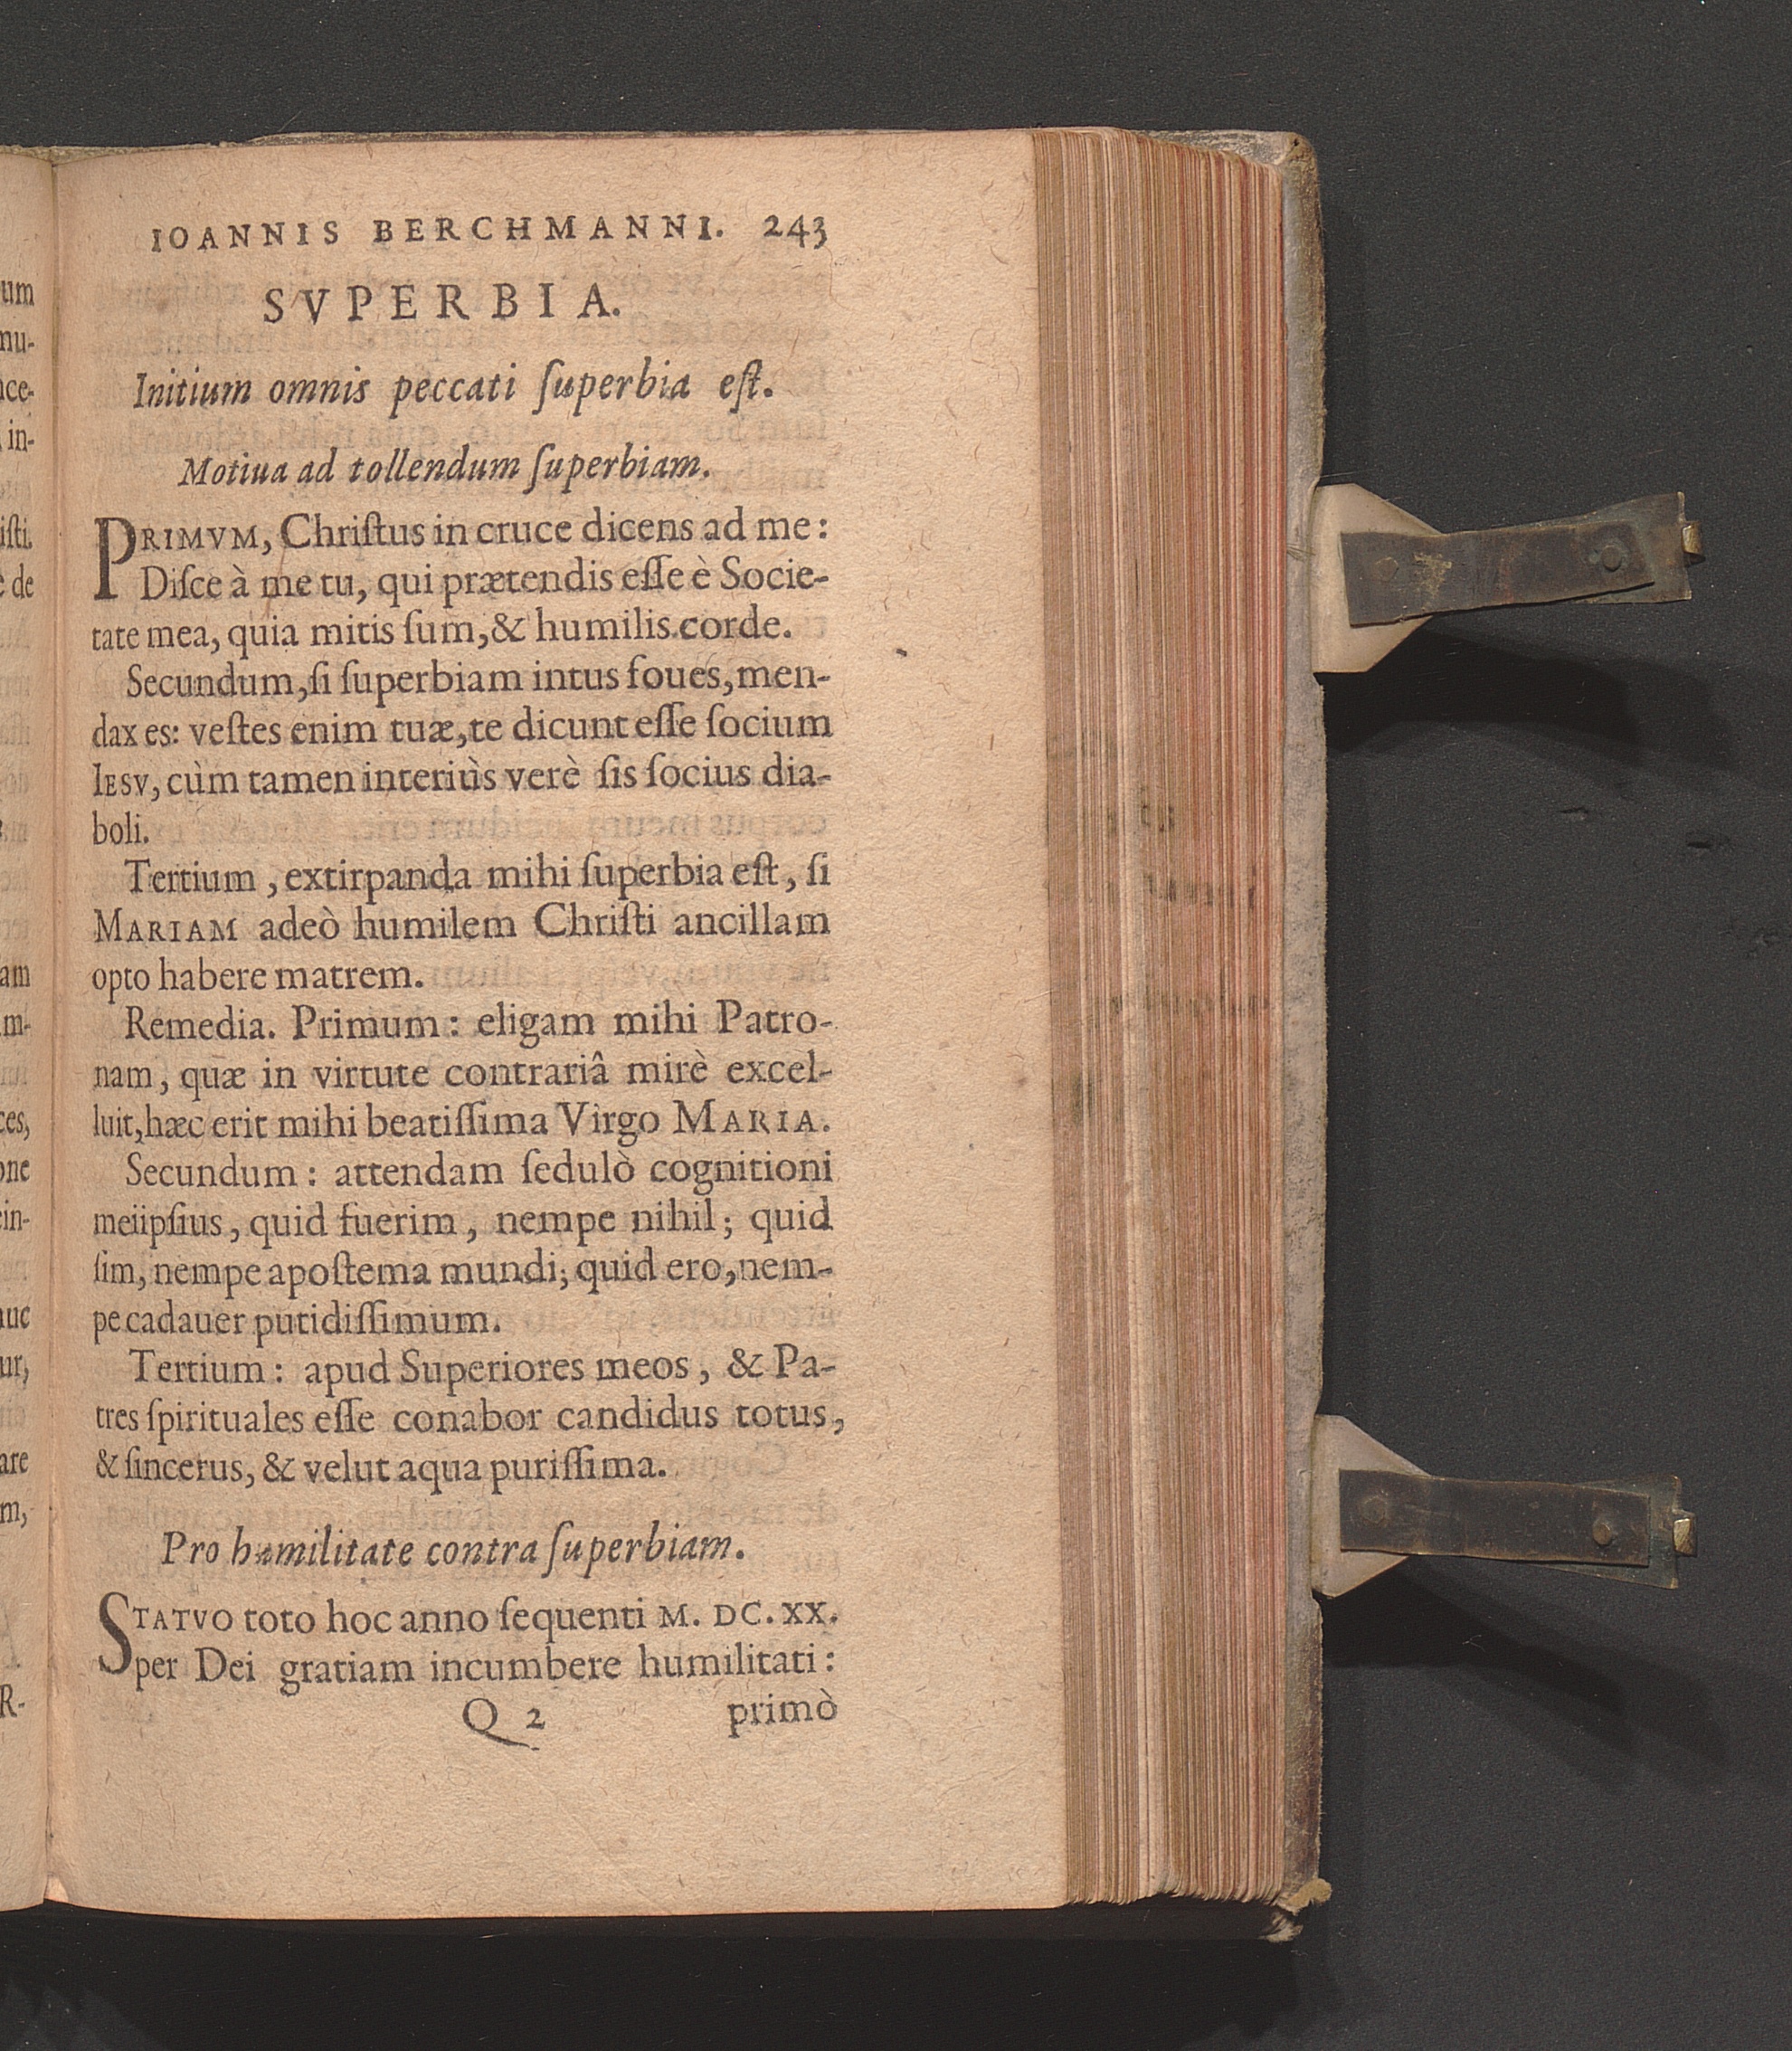 IOANNIS BERCHMANNI. 243
SVPERBIA.
Initium omnis peccati ſuperbia eſt.
Motiua ad tollendum ſuperbiam.
PRIMVM, Chriſtus in cruce dicens ad me:
Diſce à me tu, qui prætendis eſſe è Socie-
tate mea, quia mitis ſum, & humilis corde.
Secundum, ſi ſuperbiam intus foues, men-
dax es: veſtes enim tuæ, te dicunt eſſe ſocium
IESV, cùm tamen interiùs verè ſis ſocius dia-
boli.
Tertium, extirpanda mihi ſuperbia eſt, ſi
MARIAM adeò humilem Chriſti ancillam
opto habere matrem.
Remedia. Primum: eligam mihi Patro-
nam, quæ in virtute contrariâ mirè excel-
luit, hæc erit mihi beatiſſima Virgo MARIA.
Secundum: attendam ſedulò cognitioni
meiipſius, quid fuerim, nempe nihil; quid
ſim, nempe apoſtema mundi; quid ero, nem-
pe cadauer putidiſſimum.
Tertium: apud Superiores meos, & Pa-
tres ſpirituales eſſe conabor candidus totus,
& ſincerus, & velut aqua puriſſima.
Pro humilitate contra ſuperbiam.
STATVO toto hoc anno ſequenti M. DC. XX.
per Dei gratiam incumbere humilitati:
Q 2 primò